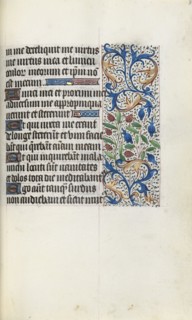 me dereliquit me virtus
me virtus mea et lumen
meorum et ipsum no
est mecum
mei et proximi mei
adversum me appropinqua
verunt et steterunt
Et qui iuxta me erant
longe steterunt et vim facie
bant qui querebant animam meam
Et qui inquirebant mala
michi locuti sunt vanitates
et dolos tota die meditabant
Ego aut tanq surdus
non audiebam et sicut mut